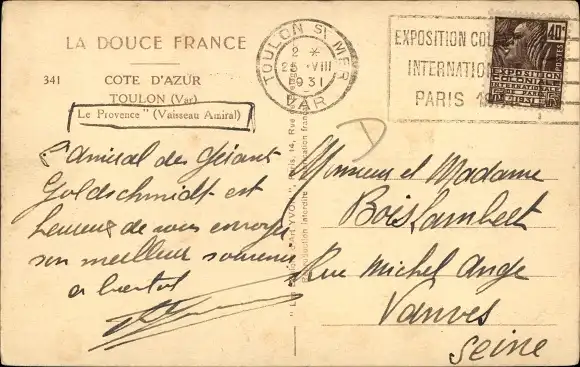 LA DOUCE FRANCE
341 COTE D'AZUR
TOULON (Var)
Le Provence" (Vaisseau Amiral)
L'amiral des Géants
Goldschmidt est
heureux de vous envoyer
son meilleur souvenir
a bientot
TOULON S. MER
2 *
25 -VIII
1931
VAR
EXPOSITION COL
INTERNATION
PARIS 1
40c
POSTES
EXPOSITION
COLONIALE
INTERNATIONALE
PARIS 1931
D
Monsieur et Madame
Bois Lambert
Rue Michel Ange
Vanves
Seine
Paris, 14, Rue
Reproduction interdite